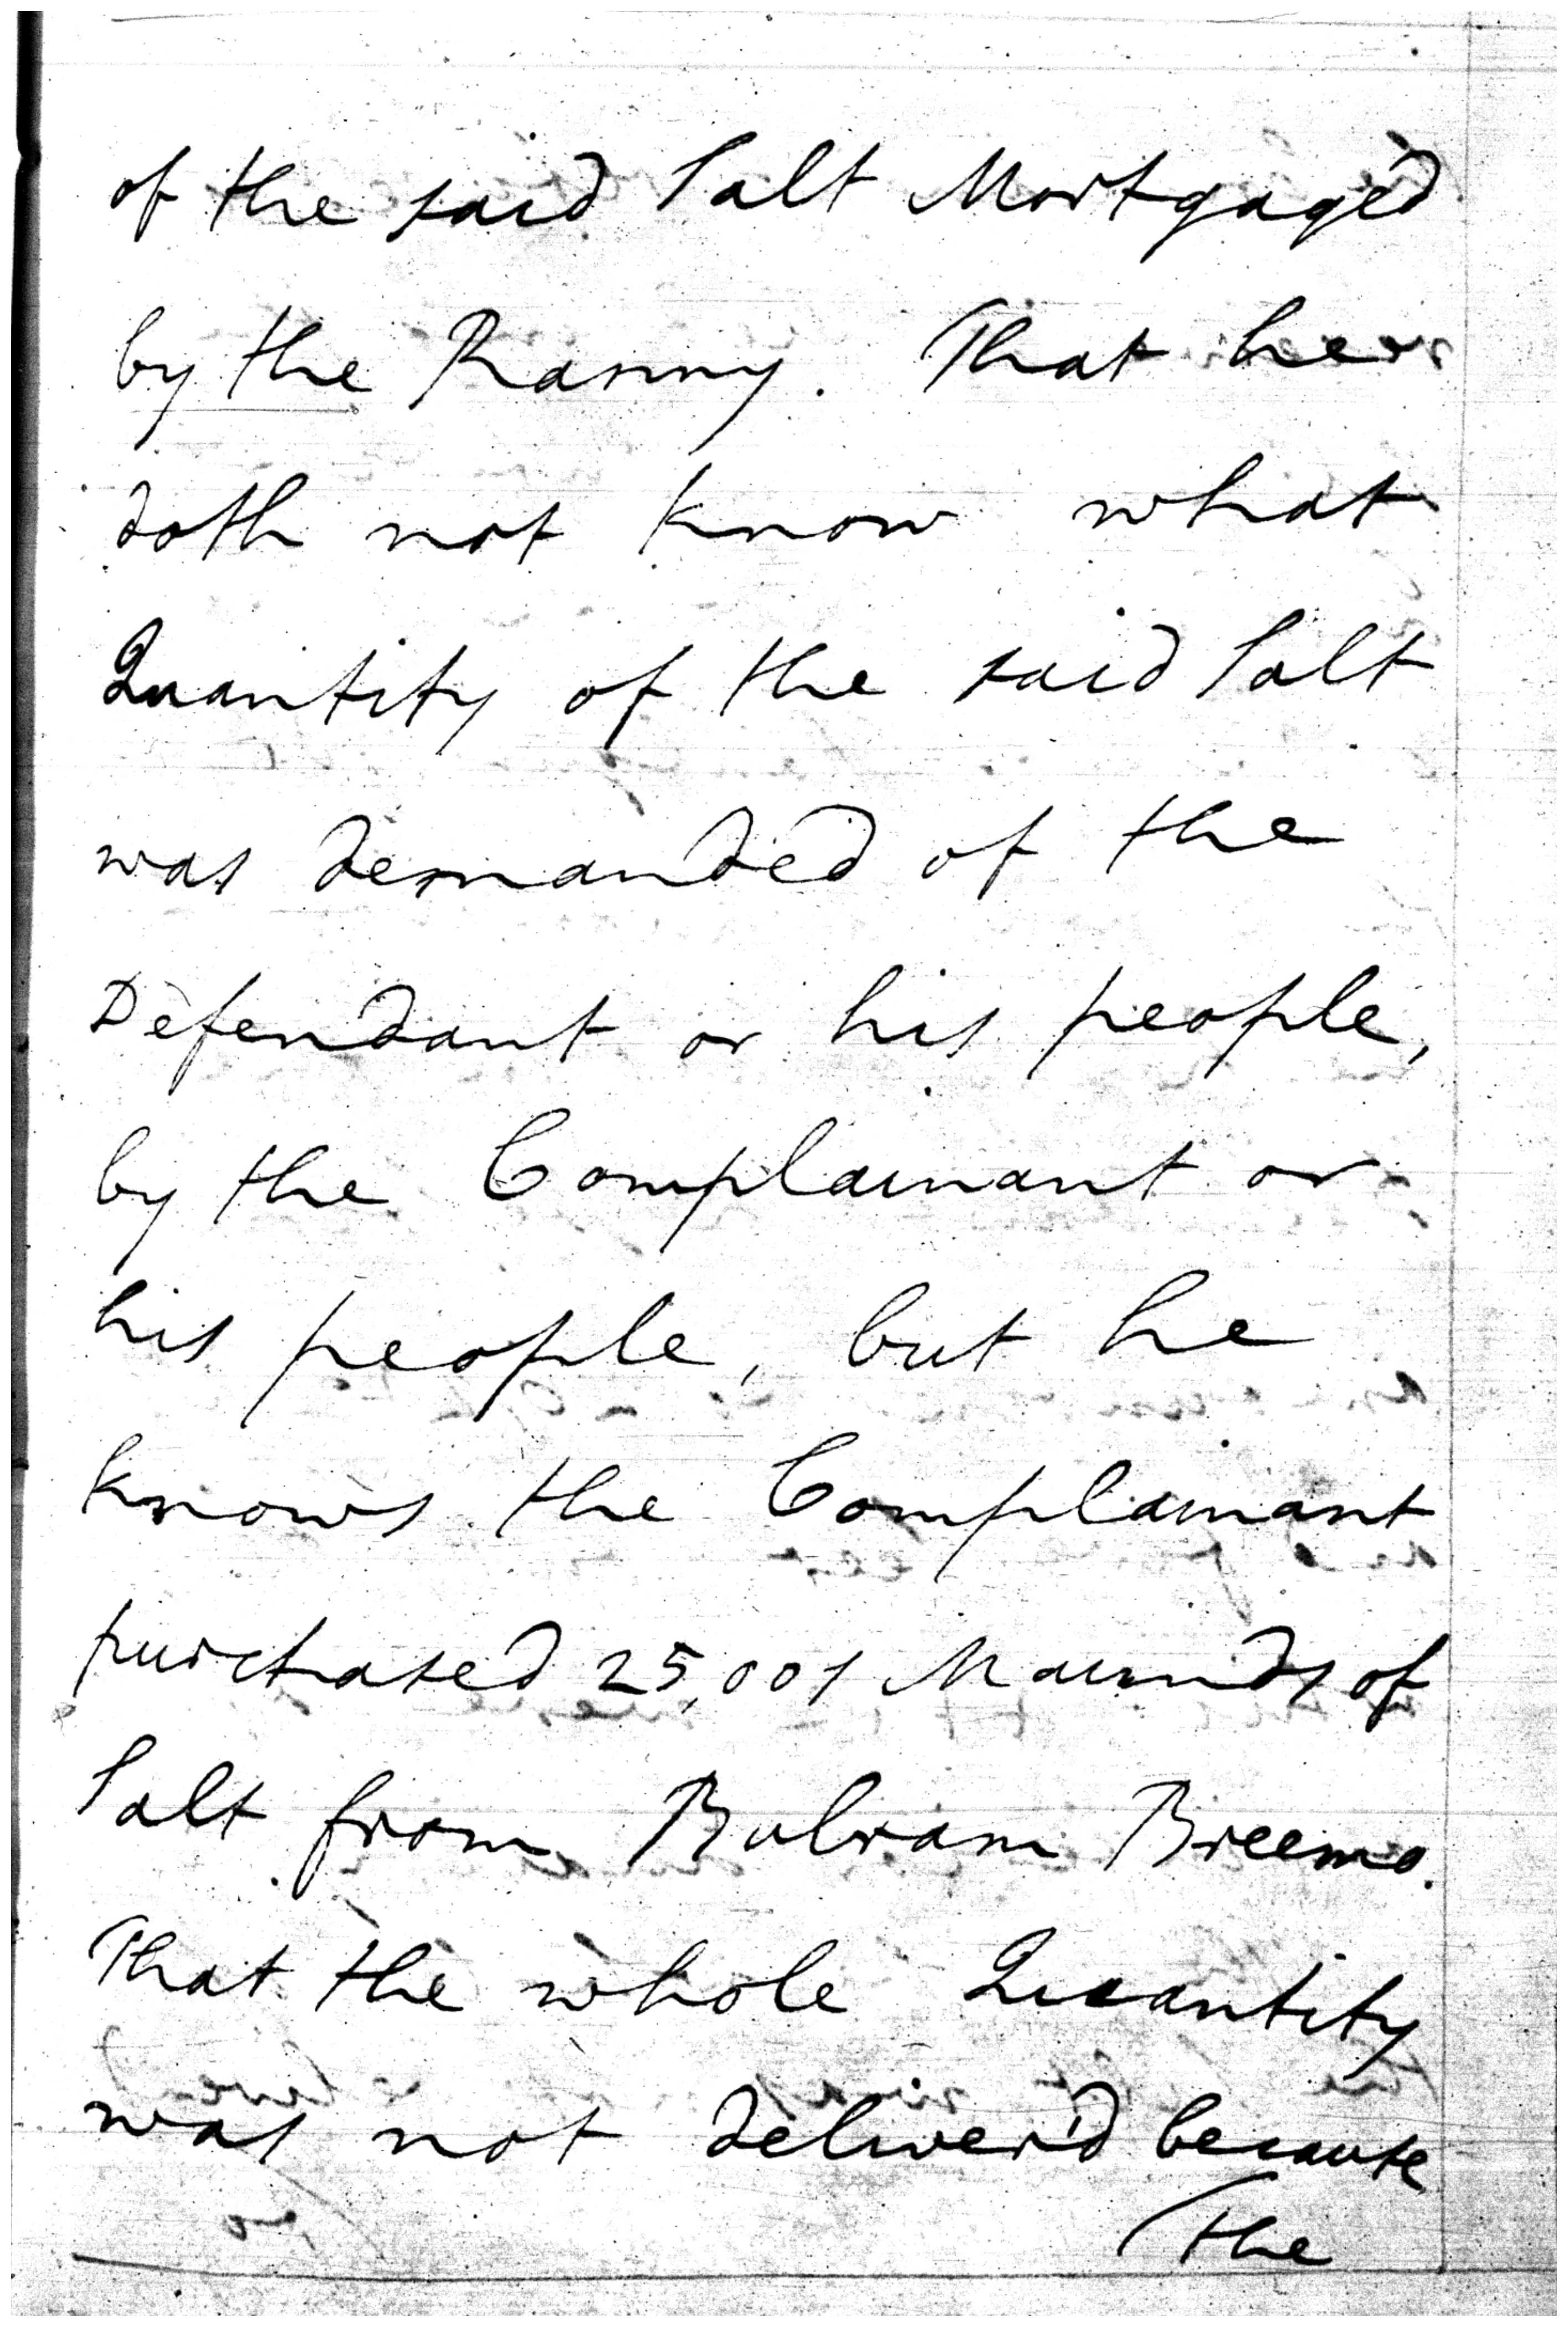 of the said Salt Mortgag'd
by the Ranny. That he
doth not know what
Quantity of the said Salt
was demanded of the
Defendant or his people,
by the Complainant or
his people, but he
knows the Complainant
purchased 25,001 Maunds of
Salt from Bulram Breemo.
That the whole Quantity
was not deliver'd because
The